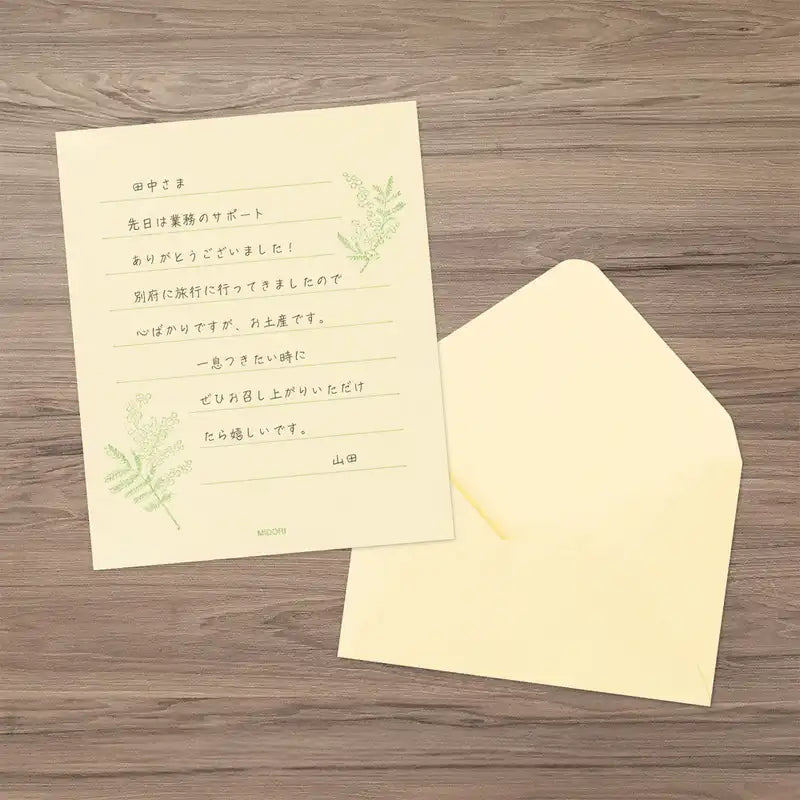 田中さま
先日は業務のサポート
ありがとうございました！
別府に旅行に行ってきましたので
心ばかりですが、お土産です。
一息つきたい時に
ぜひお召し上がりいただけ
たら嬉しいです。
山田
MIDORI